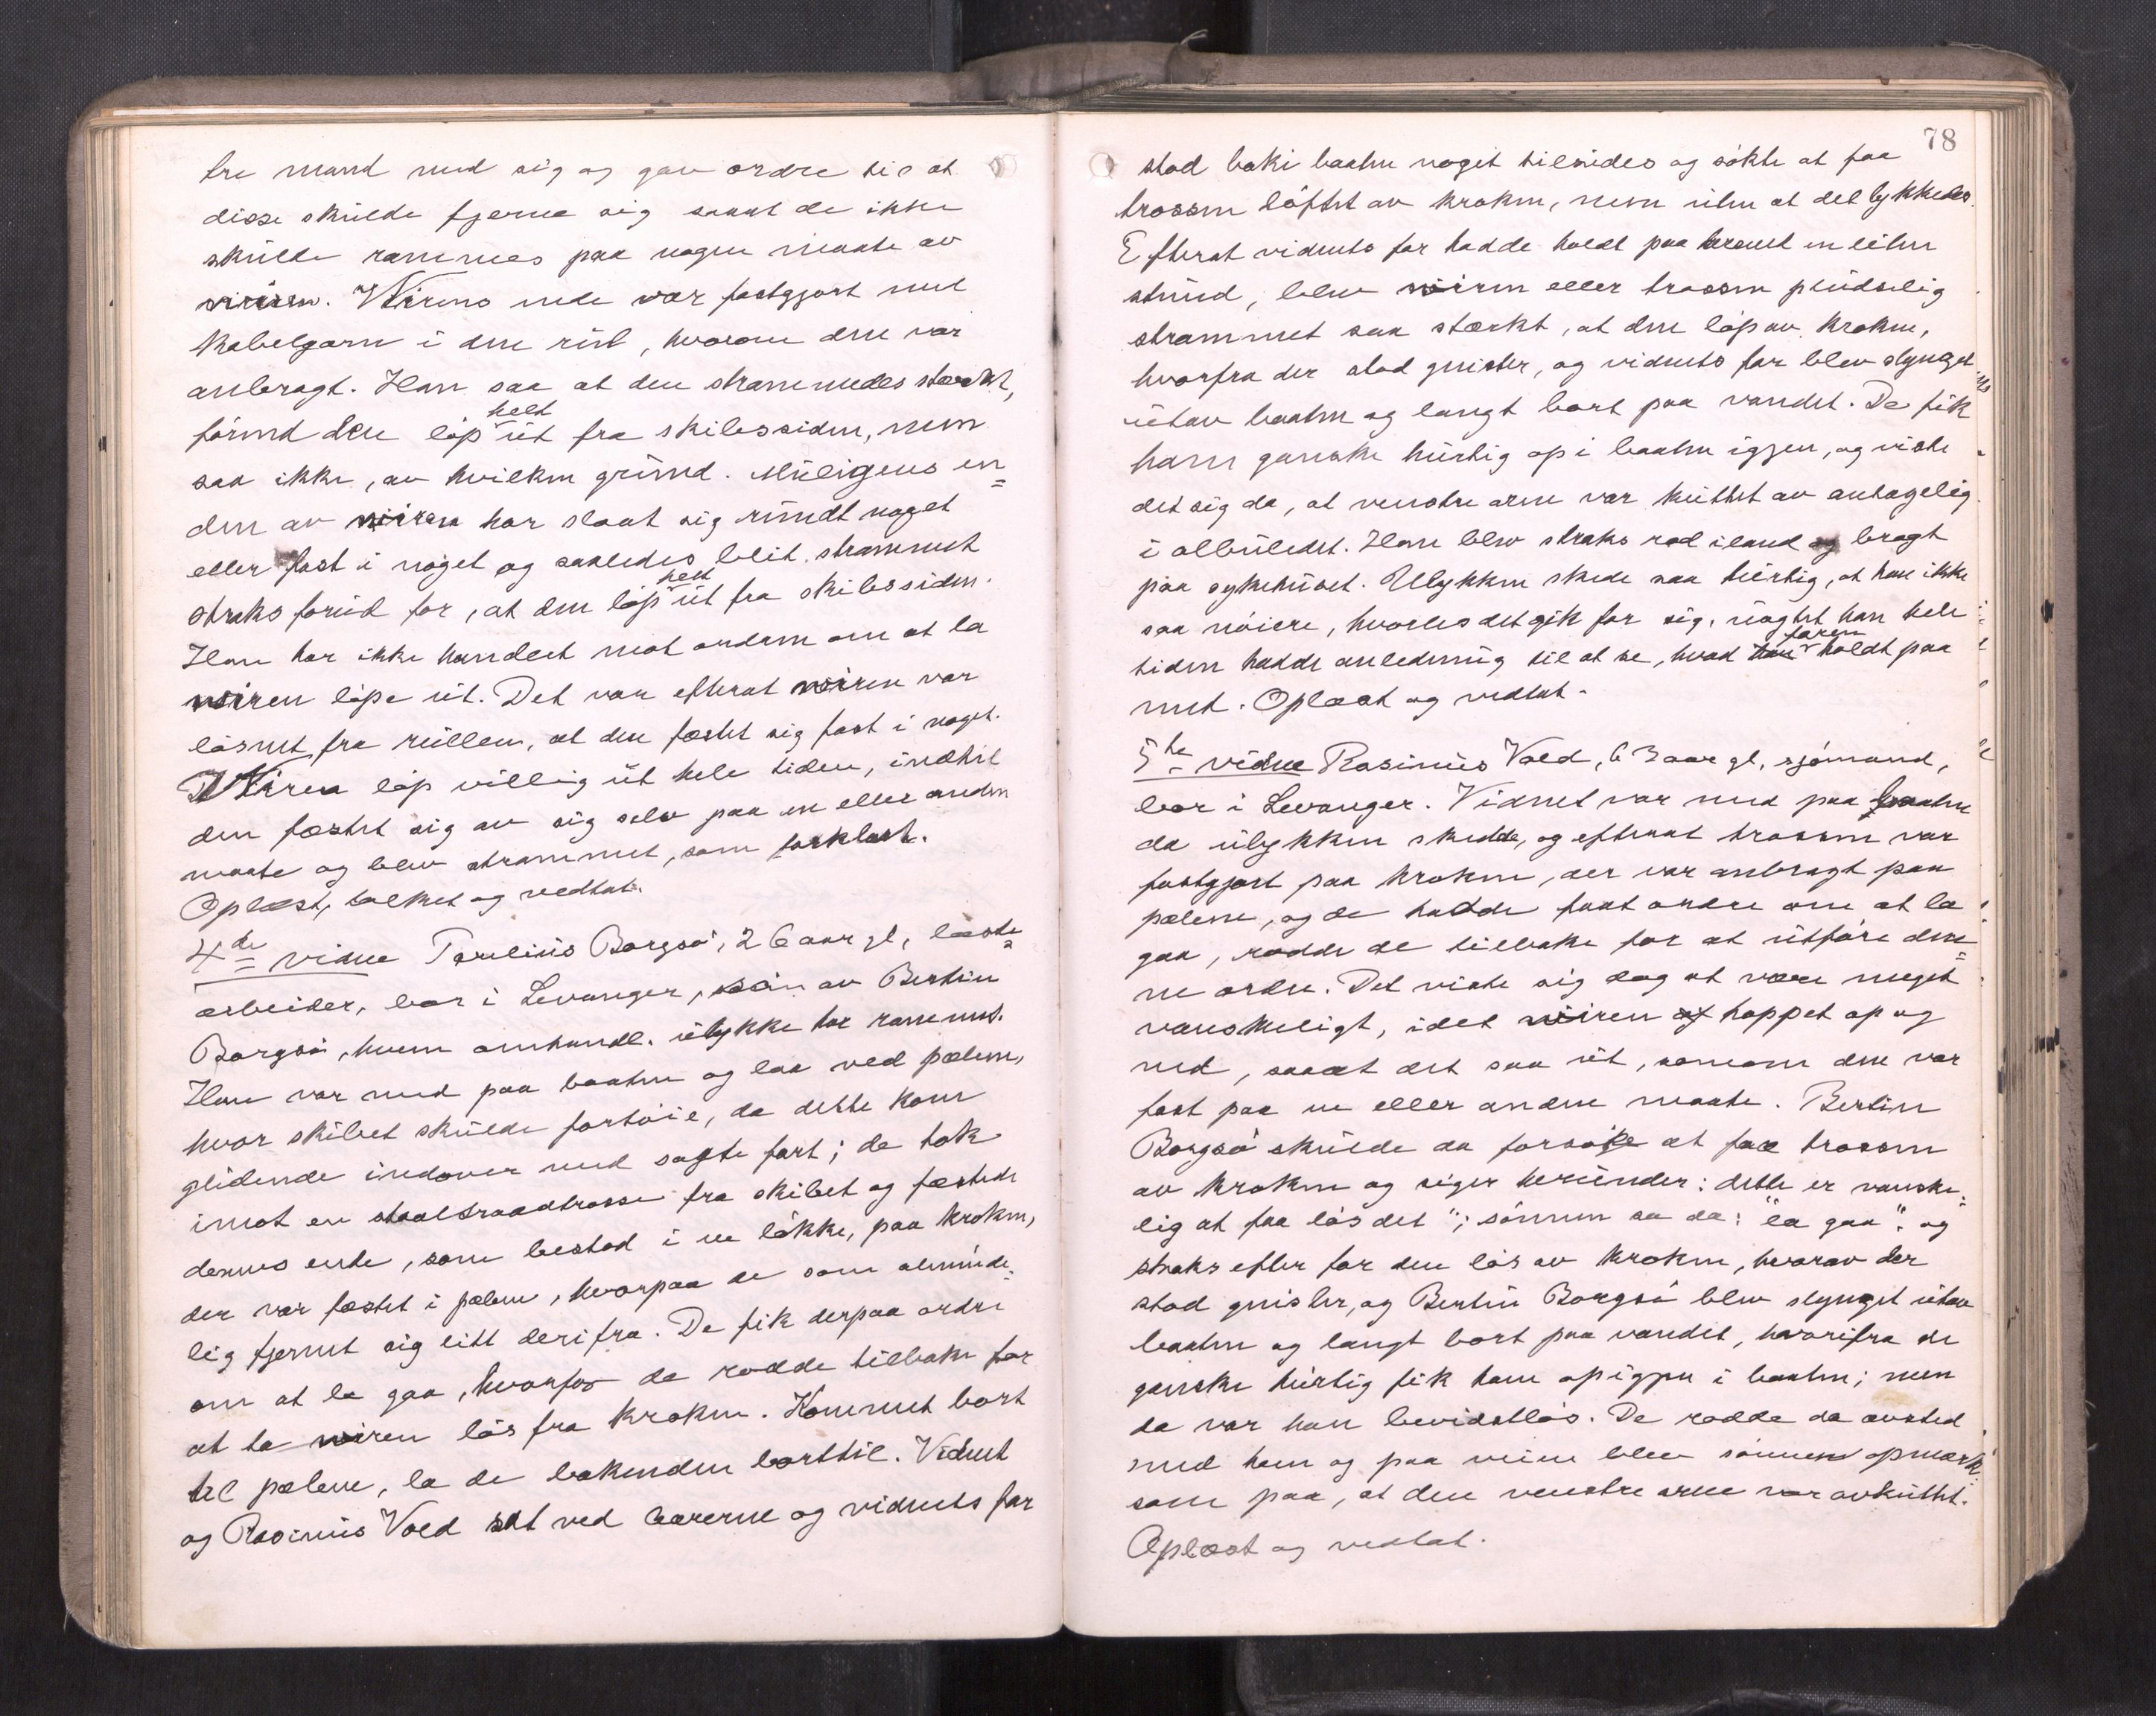 tre mand med sig og gav ordre til at
disse skulde fjerne sig saaat de ikke
skulde rammes paa nogen maate av
wiren. Wirens ende var fastgjort med
kabelgarn i den rul, hvorom den var
anbragt. Han saa at den strammedes stærkt,
förend den löp helt ut fra skibssiden, men
saa ikke, av hvilken grund. Muligens en=
den av wiren har slaat sig rundt noget
eller fast i noget og saaledes blit strammet
straks forud for, at den löp helt ut fra skibssiden.
Han har ikke handlet mot ordren om at la
wiren löpe ut. Det var efterat wiren var
lösnet fra rullen, at den fæstet sig fast i noget.
Wiren löp villig ut hele tiden, indtil
den fæstet sig av sig selv paa en eller anden
maate og blev strammet, som forklart.
Oplæst, tolket og vedtat.
4de vidne Torelius Borgsö, 26 aar gl, laste=
arbeider, bor i Levanger, sön av Bertin
Borgsö, hvem omhandl. ulykke har rammet.
Han var med paa baaten og laa ved pælene,
hvor skibet skulde fortöie, da dette kom
glidende indover med sagte fart; de tok
imot en staaltraadtrosse fra skibet og fæstede
dennes ende, som bestod i en lökke, paa kroken,
der var fæstet i pælene, hvorpaa de som alminde=
lig fjernet sig litt derifra. De fik derpaa ordre
om at la gaa, hvorfor de rodde tilbake for
at ta wiren lös fra kroken. Kommet bort
til pælene, la de bakenden borttil. Vidnet
og Rasinius Vold sat ved aarerne og vidnets far
78
stod baki baaten noget tilsides og sökte at faa
trossen löftet av kroken, men uten at det lykkedes.
Efterat vidnets far hadde holdt paa hermed en liten
stund, blev wiren eller trossen pludselig
strammet saa stærkt, at den löp av kroken,
hvorfra der stod gnister, og vidnets far blev slynget
utav baaten og langt bort paa vandet. De fik
ham ganske hurtig op i baaten igjen, og viste
det sig da, at venstre arm var kuttet av antagelig
i albuledet. Han blev straks rod iland og bragt
paa sykehuset. Ulykken skede saa hurtig, at han ikke
saa nöiere, hvorles det gik for sig, uagtet han hele
tiden hadde anledning til at se, hvad faren holdt paa
med. Oplæst og vedtat.
5te vidne Rasinius Vold, 63 aar gl, sjömand,
bor i Levanger. Vidnet var med paa baaten
da ulykken skedde, og efteraat trossen var
fastgjort paa kroken, der var anbragt paa
pælene, og de hadde faat ordre om at la
gaa, rodde de tilbake for at utföre den=
ne ordre. Det viste sig dog at være meget
vanskeligt, idet wiren hoppet op og
ned, saaat det saa ut, somom den var
fast paa en eller anden maate. Bertin
Borgsö skulde da forsöke at faa trossen
av kroken og siger herunder: dette er vanske=
lig at faa lös det"; sönnen sa da: "la gaa". og
straks efter for den lös av kroken, hvorav der
stod gnister, og Bertin Borgsö blev slynget utav
baaten og langt bort paa vandet, hvorifra de
ganske hurtig fik ham op igjen i baaten; men
da var han bevidstlös. De rodde da avsted
med ham og paa veien blev sönnen opmærk=
som paa, at den venstre arm var avkuttet.
Oplæst og vedtat.